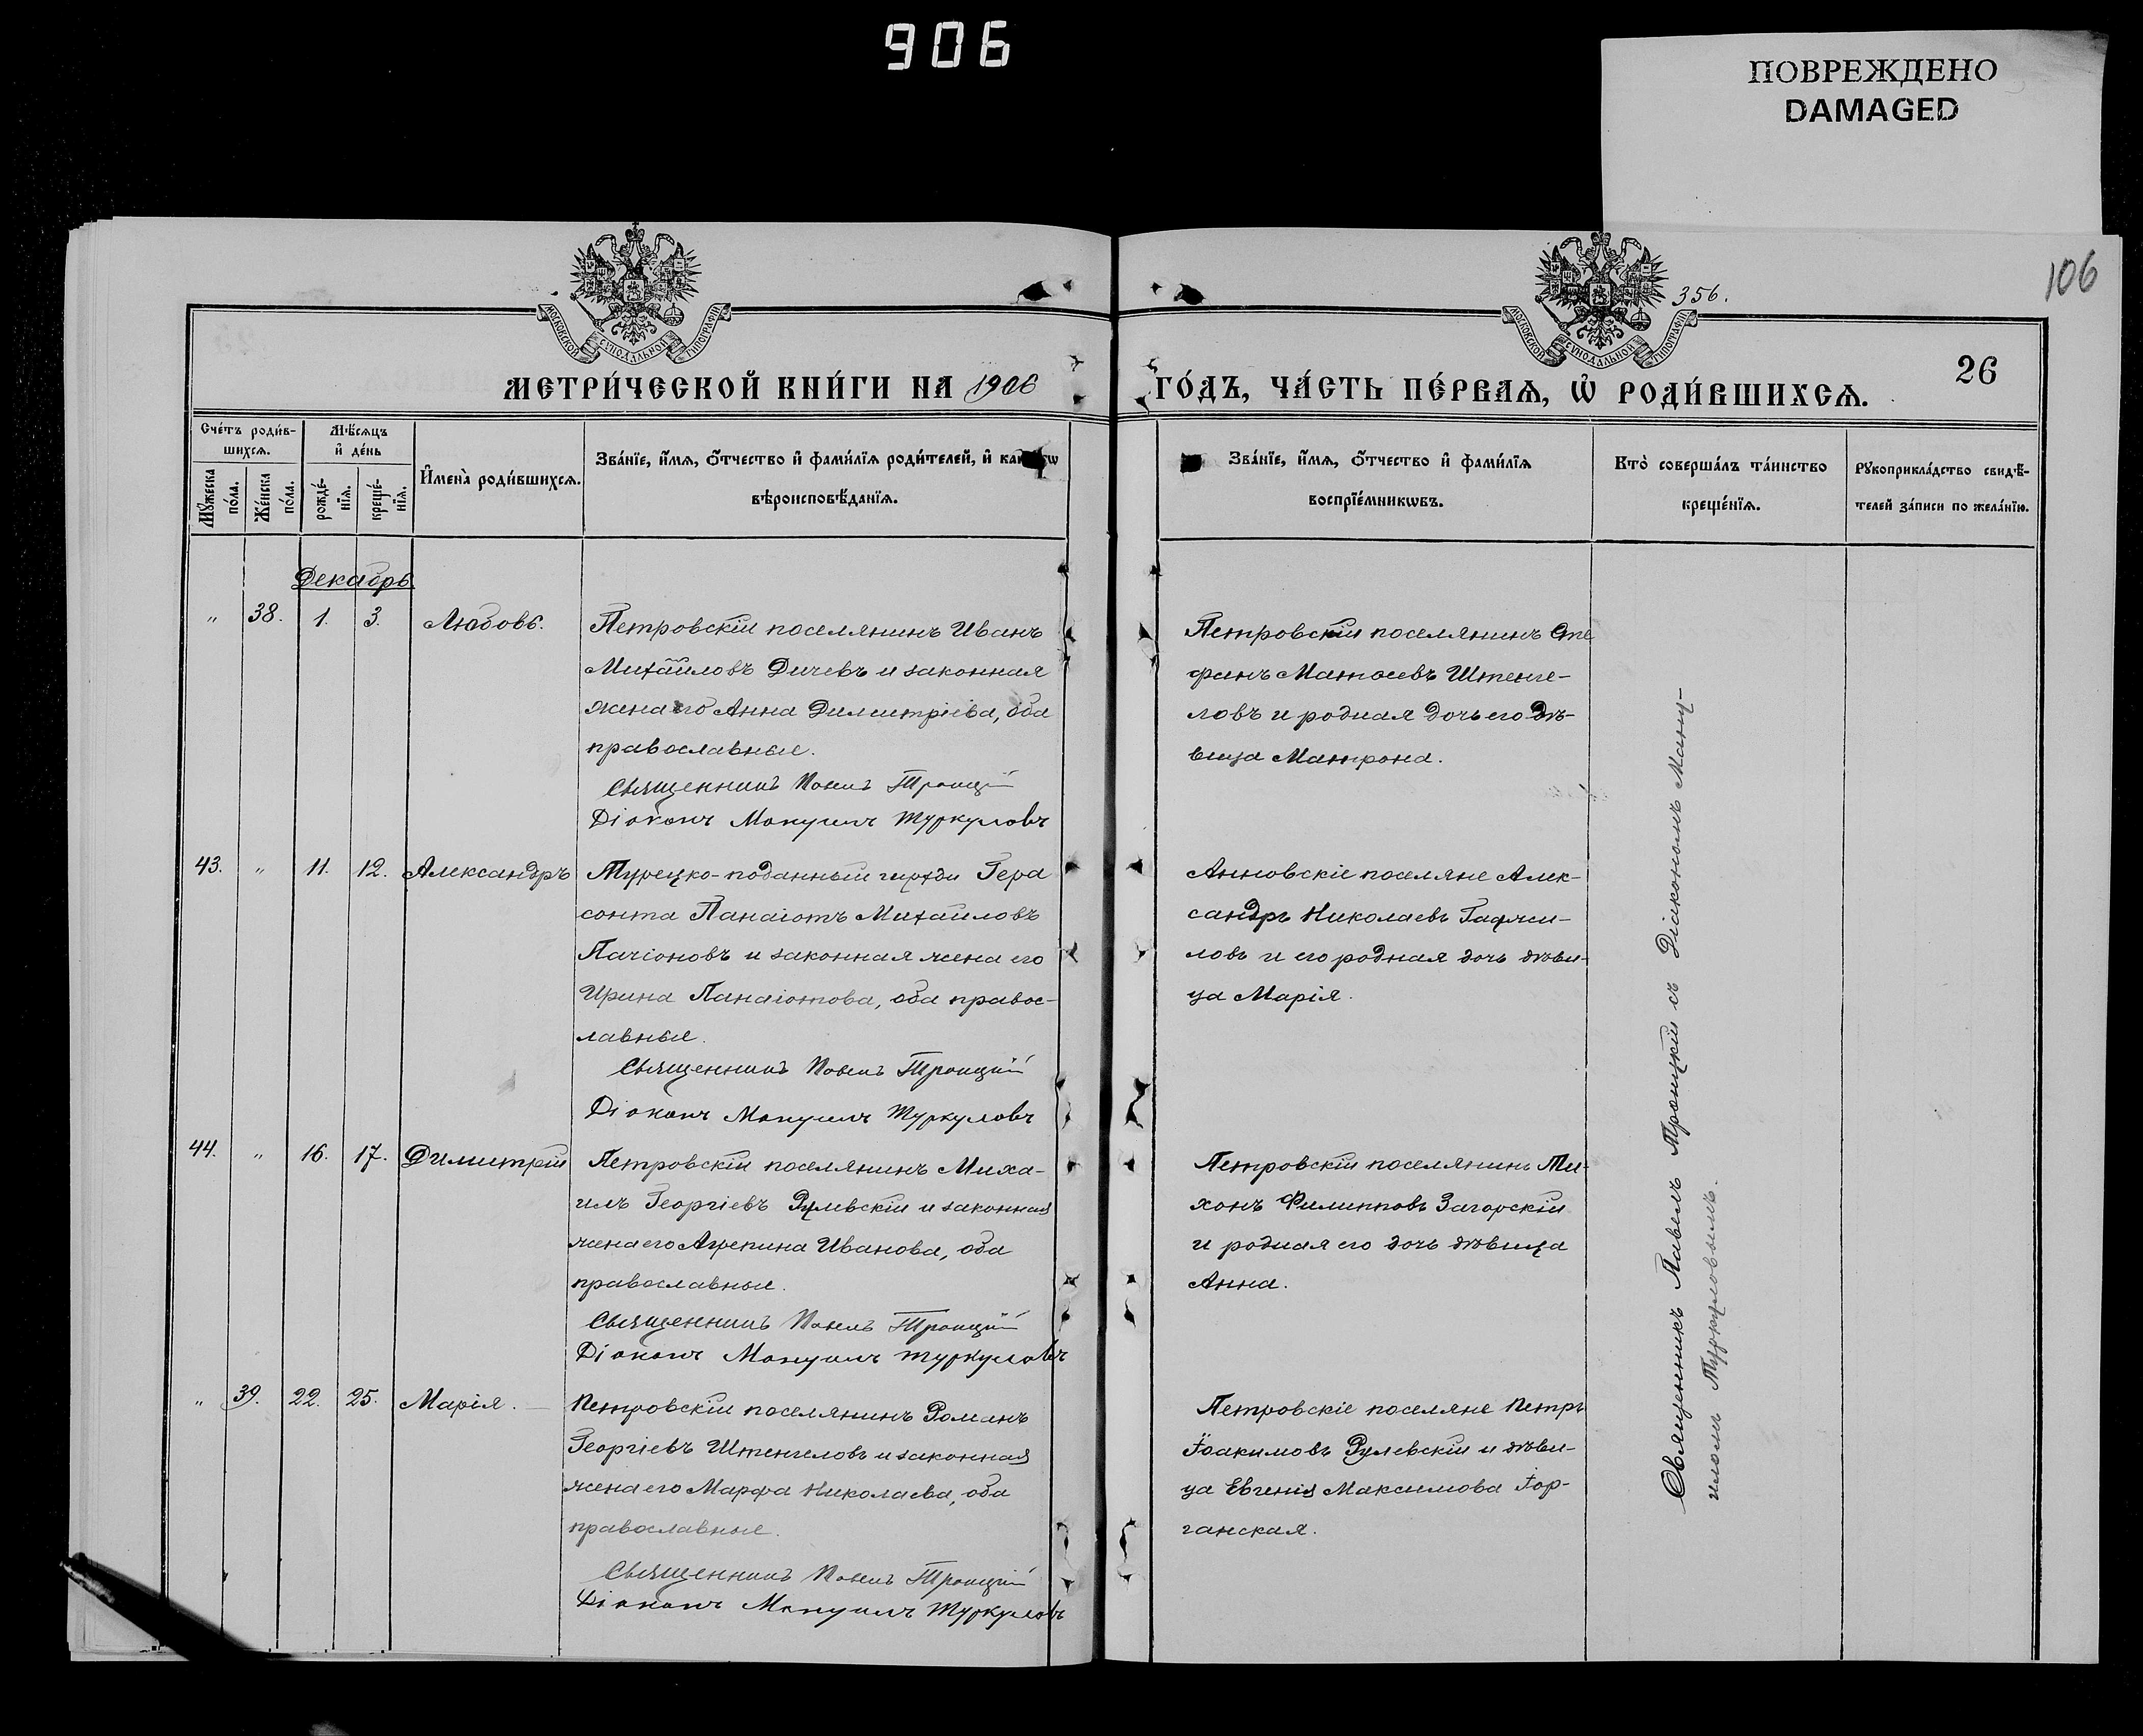 906
ПОВРЕЖДЕНО
DAMAGED
106
356.
26
МОСКОВСКОЙ СУНОДАЛЬНОЙ ТИПОГРАФІИ
МОСКОВСКОЙ СУНОДАЛЬНОЙ ТИПОГРАФІИ
МЕТРИ́ЧЕСКОЙ КНИ́ГИ НА 1906 ГО́ДЪ, ЧА́СТЬ ПЕ́РВАѦ, Ѡ҆ РОДИ́ВШИХСѦ.
Сче́тъ роди́в-
шихсѧ.
Мѣ́сѧцъ
и҆ де́нь
Мꙋ́жеска
по́ла.
Же́нска
по́ла.
рожде́-
нїѧ.
креще́-
нїѧ.
И҆мена̀ роди́вшихсѧ.
Зва́нїе, и҆́мѧ, ѻ҆́тчество и҆ фами́лїѧ роди́телей, и҆
вѣроисповѣ́данїѧ.
Зва́нїе, и҆́мѧ, ѻ҆́тчество и҆ фами́лїѧ
воспрїе́мникѡвъ.
Кто̀ соверша́лъ та́инство
креще́нїѧ.
Рꙋкоприкла́дство свидѣ́-
телей за́писи по жела́нїю.
Декабрь
„ 38. 1. 3. Любовь.
Петровскій поселянинъ Иванъ
Михайловъ Дичевъ и законная
жена его Анна Димитріева, оба
православные.
Священникъ Павелъ Троицкій
Діаконъ Мануилъ Туркуловъ
Петровскій поселянинъ Сте
фанъ Матѳеевъ Штенге-
ловъ и родная дочь его дѣ-
вица Матрона.
43. „ 11. 12. Александръ
Турецко-поданный Гера
сонта Панаіотъ Михайловъ
Пачіоновъ и законная жена его
Ирина Панаіотова, оба правос-
лавные.
Священникъ Павелъ Троицкій
Діаконъ Мануилъ Туркуловъ
Анновскіе поселяне Алек-
сандръ Николаевъ
ловъ и его родная дочь дѣви-
ца Марія.
44. „ 16. 17. Димитрій
Петровскій поселянинъ Миха-
илъ Георгіевъ Рулевскій и законная
жена его Агрепина Иванова, оба
православные.
Священникъ Павелъ Троицкій
Діаконъ Мануилъ Туркуловъ
Петровскій поселянинъ Ти-
хонъ Филипповъ Загорскій
и родная его дочь дѣвица
Анна.
„ 39. 22. 25. Марія.
Петровскій поселянинъ Романъ
Георгіевъ Штенгеловъ и законная
жена его Марфа Николаева, оба
православные.
Священникъ Павелъ Троицкій
Діаконъ Мануилъ Туркуловъ
Петровскіе поселяне Петръ
Іоакимовъ Рулевскій и дѣви-
ца Евгенія Максимова Іор-
ганская.
Священникъ Павелъ Троицкій съ Діакономъ Ману-
иломъ Туркуловымъ.